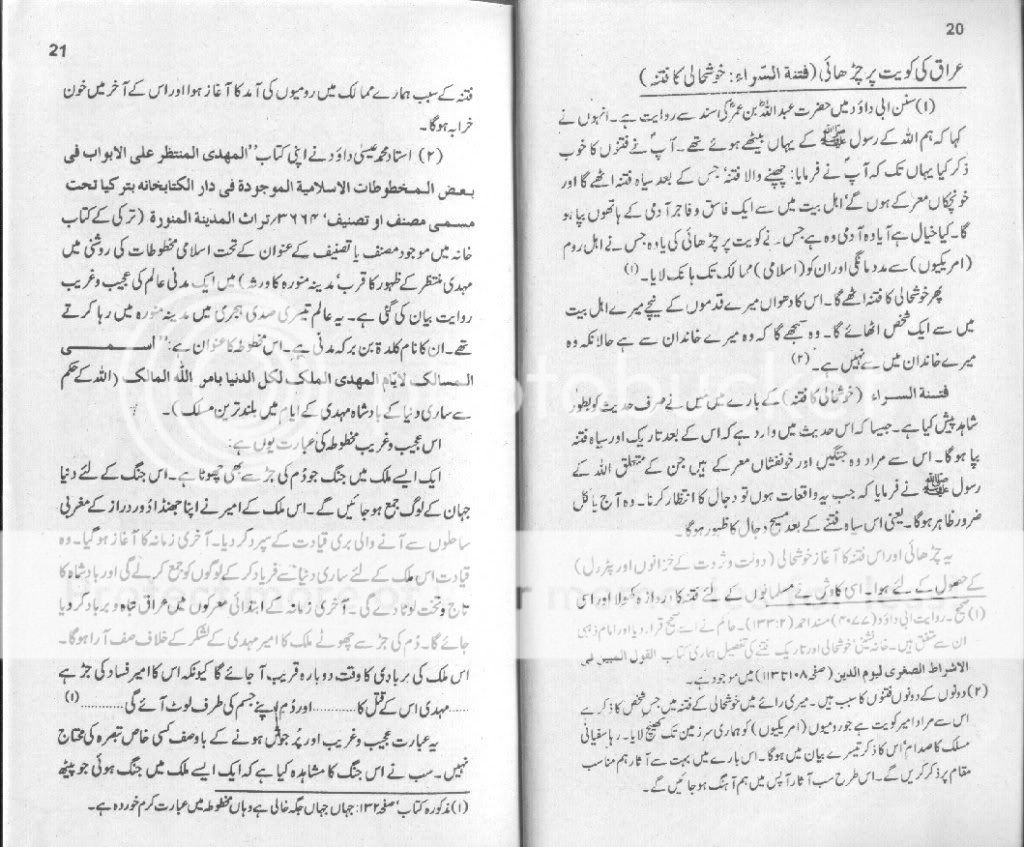 20
عراق کی کویت پر چڑھائی (فتنۃ السّراء: خوشحالی کا فتنہ)
(۱) سنن ابی داؤد میں حضرت عبداللہؓ بن عمرؓ کی سند سے روایت ہے۔ انہوں نے
کہا کہ ہم اللہ کے رسول ﷺ کے یہاں بیٹھے ہوئے تھے۔ آپؐ نے فتنوں کا خوب
ذکر کیا یہاں تک کہ آپؐ نے فرمایا: چھپنے والا فتنہ، جس کے بعد سیاہ فتنہ اٹھے گا اور
خونچکاں معرکے ہوں گے، اہل بیت میں سے ایک فاسق و فاجر آدمی کے ہاتھوں بپا ہو
گا۔ کیا خیال ہے آیا وہ آدمی وہ ہے جس نے کویت پر چڑھائی کی یا وہ جس نے اہل روم
(امریکیوں) سے مدد مانگی اور ان کو (اسلامی) ممالک تک ہانک لایا۔ (۱)
پھر خوشحالی کا فتنہ اٹھے گا۔ اس کا دھواں میرے قدموں کے نیچے میرے اہل بیت
میں سے ایک شخص اٹھائے گا۔ وہ سمجھے گا کہ وہ میرے خاندان سے ہے حالانکہ وہ
میرے خاندان میں سے نہیں ہے۔ (۲)
فتنۃ السراء (خوشحالی کا فتنہ) کے بارے میں میں نے صرف حدیث کو بطور
شاہد پیش کیا ہے۔ جیسا کہ اس حدیث میں وارد ہے کہ اس کے بعد تاریک اور سیاہ فتنہ
بپا ہوگا۔ اس سے مراد وہ جنگیں اور خونفشاں معرکے ہیں جن کے متعلق اللہ کے
رسول ﷺ نے فرمایا کہ جب یہ واقعات ہوں تو دجال کا انتظار کرنا۔ وہ آج یا کل
ضرور ظاہر ہوگا۔ یعنی اس سیاہ فتنے کے بعد مسیح دجال کا ظہور ہوگا۔
یہ چڑھائی اور اس فتنہ کا آغاز خوشحالی (دولت و ثروت کے خزانوں اور پٹرول)
کے حصول کے لئے ہوا۔ اسی کاوش نے مسلمانوں کے لئے فتنہ کا دروازہ کھولا اور اسی
(۱) صحیح۔ روایت ابی داؤد (۳۰۷۷) مسند احمد (۱۳۳:۲)۔ حاکم نے اسے صحیح قرار دیا اور امام ذہبی
ان سے متفق ہیں۔ خانہ نشینی خوشحالی اور تاریک فتنے کی تفصیل ہماری کتاب القول المبین فی
الاشراط الصغری لیوم الدین (صفحہ ۱۰۸ تا ۱۱۳) میں موجود ہے۔
(۲) دونوں کے دونوں فتنوں کا سبب ہیں۔ میری رائے میں خوشحالی کے فتنہ میں جس شخص کا ذکر ہے
اس سے مراد امیر کویت ہے جو رومیوں (امریکیوں) کو ہماری سرزمین تک کھینچ لایا۔ رہا سفیانی
مسلک کا صدام، اس کا ذکر تیسرے بیان میں ہوگا۔ اس بارے میں بہت سے آثار ہم مناسب
مقام پر ذکر کریں گے۔ اس طرح سب آثار آپس میں ہم آہنگ ہو جائیں گے۔
21
فتنہ کے سبب ہمارے ممالک میں رومیوں کی آمد کا آغاز ہوا اور اس کے آخر میں خون
خرابہ ہوگا۔
(۲) استاد محمد عیسیٰ داؤد نے اپنی کتاب "المهدی المنتظر علی الابواب فی
بعض المخطوطات الاسلامیة الموجودة فی دار الکتابخانه بترکیا تحت
مسمی مصنف او تصنیف، ۳۶۶۴/تراث المدینة المنورة (ترکی کے کتاب
خانہ میں موجود مصنف یا تصنیف کے عنوان کے تحت اسلامی مخطوطات کی روشنی میں
مہدی منتظر کے ظہور کا قرب، مدینہ منورہ کا ورثہ) میں ایک مدنی عالم کی عجیب و غریب
روایت بیان کی گئی ہے۔ یہ عالم تیسری صدی ہجری میں مدینہ منورہ میں رہا کرتے
تھے۔ ان کا نام کلدۃ بن برکہ مدنی ہے۔ اس مخطوطہ کا عنوان ہے: "اسمی
المسالک لایّام المهدی الملک لکل الدنیا بامر اللّٰه المالک (اللہ کے حکم
سے ساری دنیا کے بادشاہ مہدی کے ایام میں بلند ترین مسلک)۔
اس عجیب و غریب مخطوطہ کی عبارت یوں ہے:
ایک ایسے ملک میں جنگ جو دُم کی جڑ سے بھی چھوٹا ہے۔ اس جنگ کے لئے دنیا
جہان کے لوگ جمع ہو جائیں گے۔ اس ملک کے امیر نے اپنا جھنڈا دُور دراز کے مغربی
ساحلوں سے آنے والی بری قیادت کے سپرد کر دیا۔ آخری زمانہ کا آغاز ہو گیا۔ وہ
قیادت اس ملک کے لئے ساری دنیا سے فریاد کر کے لوگوں کو جمع کر لے گی اور بادشاہ کا
تاج و تخت لوٹا دے گی۔ آخری زمانہ کے ابتدائی معرکوں میں عراق تباہ و برباد کر دیا
جائے گا۔ دُم کی جڑ سے چھوٹے ملک کا امیر مہدی کے لشکر کے خلاف صف آرا ہوگا۔
اس ملک کی بربادی کا وقت دوبارہ قریب آ جائے گا کیونکہ اس کا امیر فساد کی جڑ ہے
......مہدی اس کے قتل کا......... اور دُم اپنے جسم کی طرف لوٹ آئے گی......... (۱)
یہ عبارت عجیب و غریب اور پُر جوش ہونے کے باوصف کسی خاص تبصرہ کی محتاج
نہیں۔ سب نے اس جنگ کا مشاہدہ کیا ہے کہ ایک ایسے ملک میں جنگ ہوئی جو پیٹھ
(۱) مذکورہ کتاب، صفحہ ۱۳۲: جہاں جہاں جگہ خالی ہے وہاں مخطوطہ میں عبارت کرم خوردہ ہے۔
photobucket